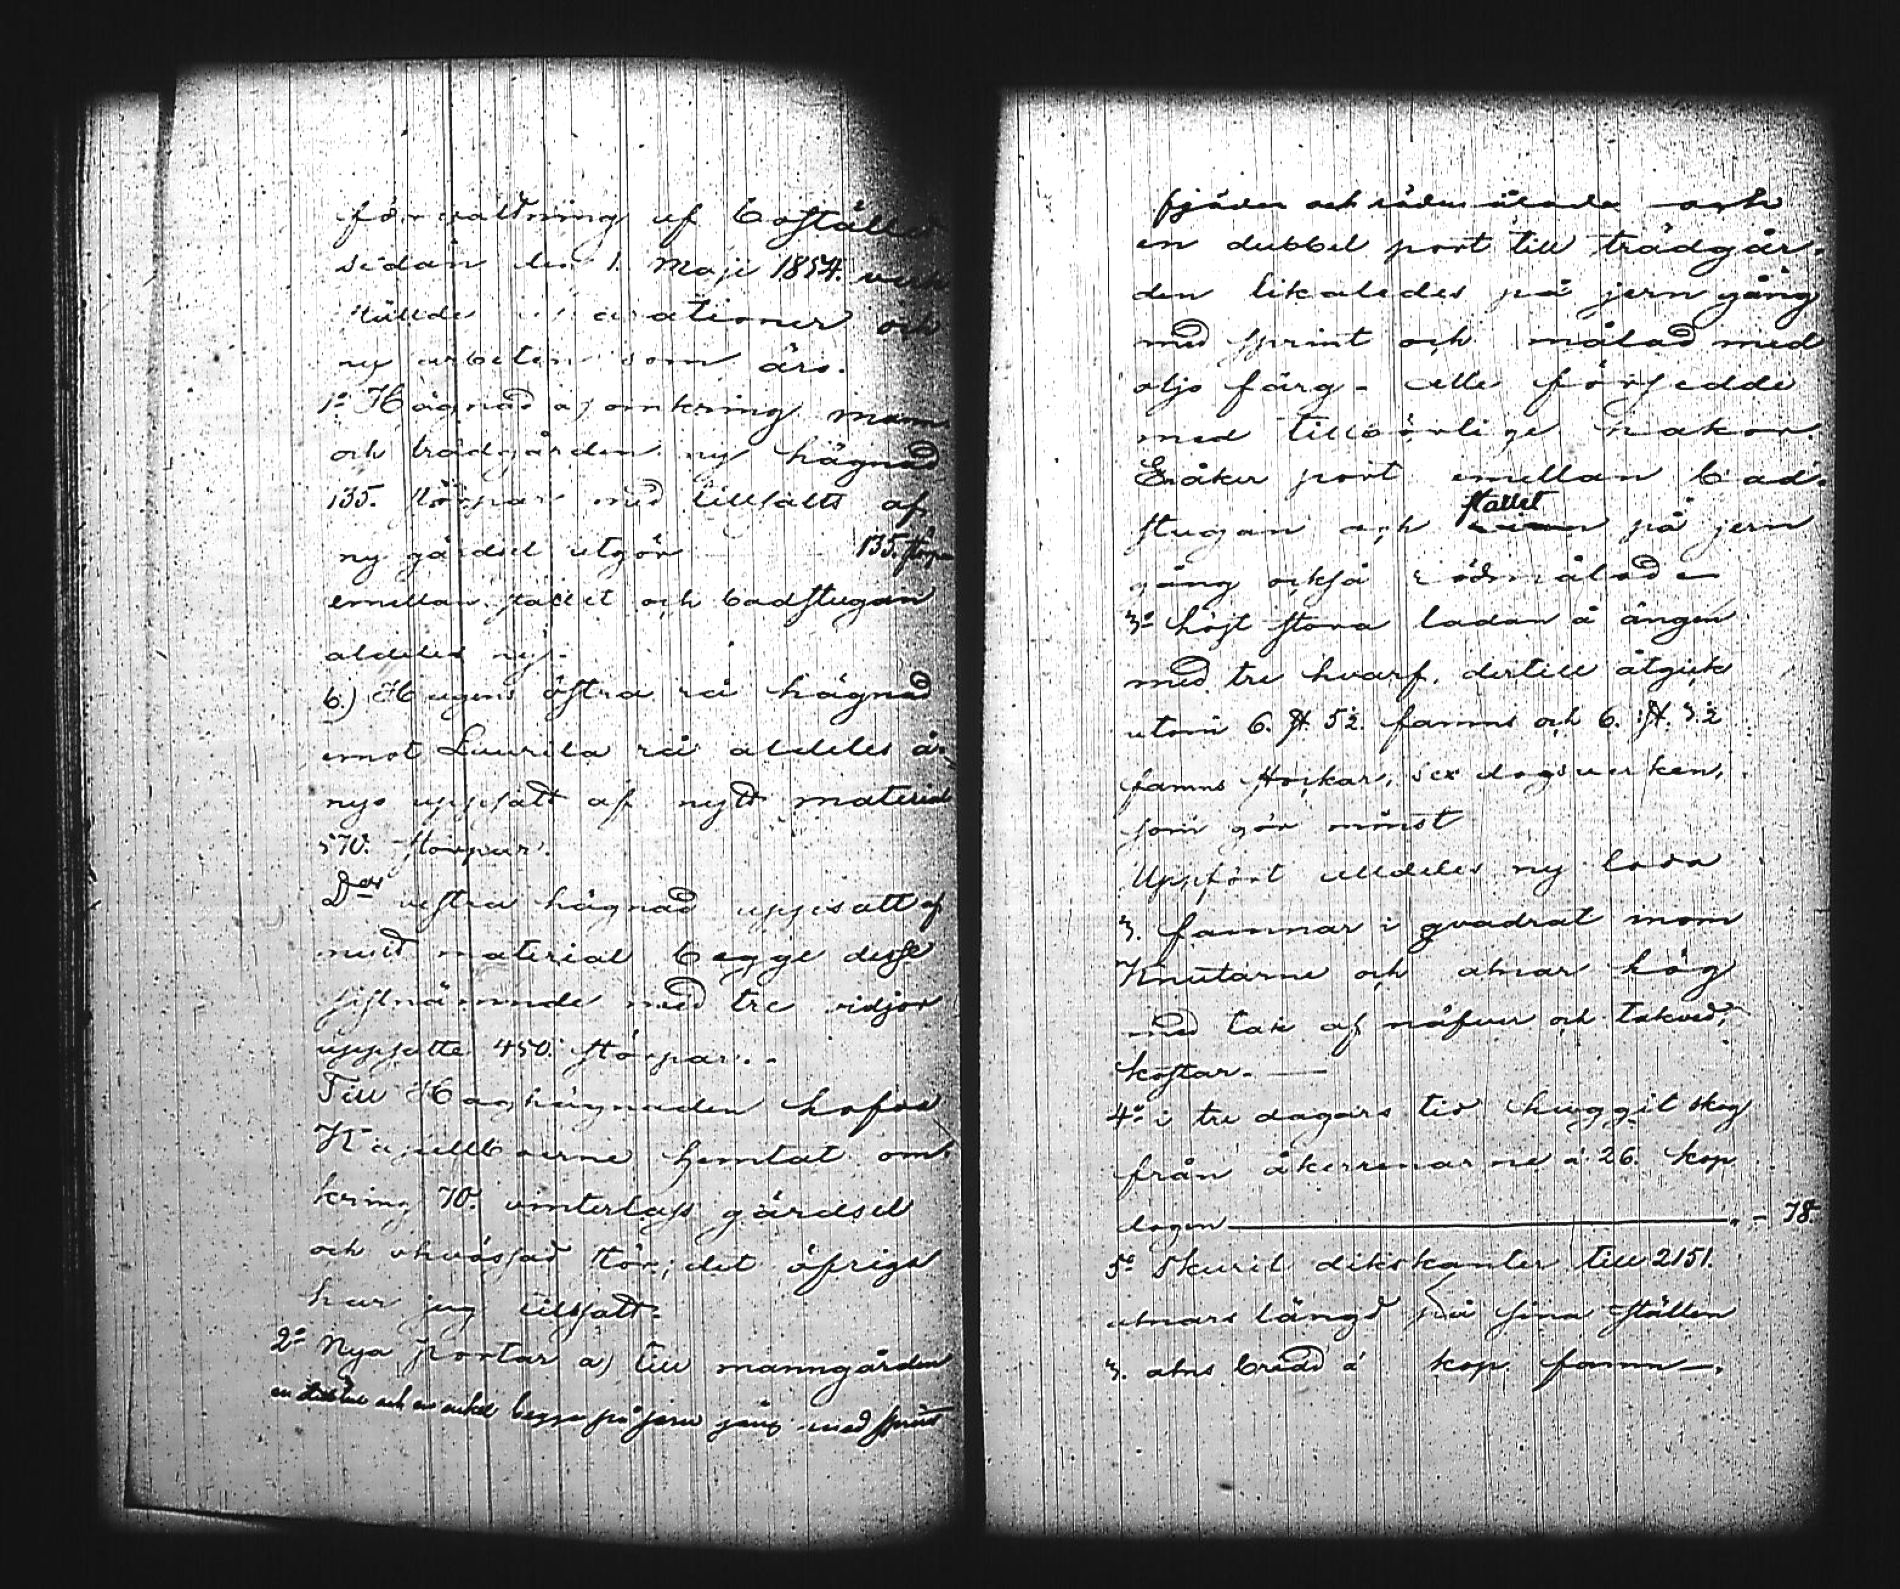 förvaltning af Boställed
sidan den 1. Maji 1854. verk
ställde reparationer och
ny arbeten som äro.
1:o Hägnad a) omkring man
och trädgården ny hägnad
135. störpar med tillsatts af
ny gärdsel utgör 135. störpar
emellan stallet och badstugan
aldeles ny.
b.) Hagens östra rå hägnad
emot Laurila rå aldeles å
nyo uppsatt af nytt material
570. störpar.
D:o vestra hägnad uppsatt af
nytt material begge desse
sistnämnde med tre vidjor
uppsatte 450. störpar.
Till Haghägnaden hafva
Kapellboerne hemtat om-
kring 70. vinterlass gärdsel
och ohvässad stör, det öfriga
har jag tillsatt.
2:o Nya portar a) till manngården
en dubbel och en enkel begge på jern gång med sprint
fjäder och rödmålade och
en dubbel port till trädgår-
den likaledes på jern gång
med sprint och målad med
oljo färg - alla försedde
med tillbörlige hakor.
En åker port emellan bad-
stugan och stallet på jern
gång också rödmålad -
3:o höjt stora ladan å ängen
med tre hvarf, dertill åtgick
utom 6. st. 5½ famns och 6. st. 3½
famns stockar, sex dagsverken,
som gör minst
Uppfört alldeles ny lada
3. famnar i qvadrat inom
Knutarne och alnar hög
med tak af näfver och takved,
kostar. —
4:o i tre dagars tid huggit skog
från åkerrenarne à 26. kop
dagen — 78.
5:o Skurit dikskanter till 2151.
alnars längd på sina ställen
3. alns bredd à kop. famn —.